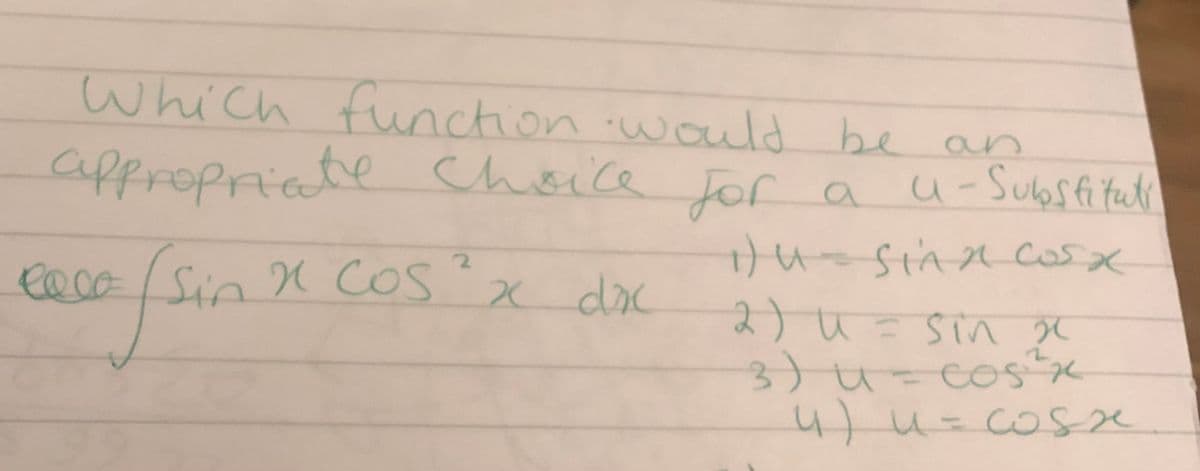 Which function would be an
appropriate choice for a u-Substituti
∫ sin x cos² x dx
1) u = sin x cos x
2) u = sin x
3) u = cos² x
4) u = cos x